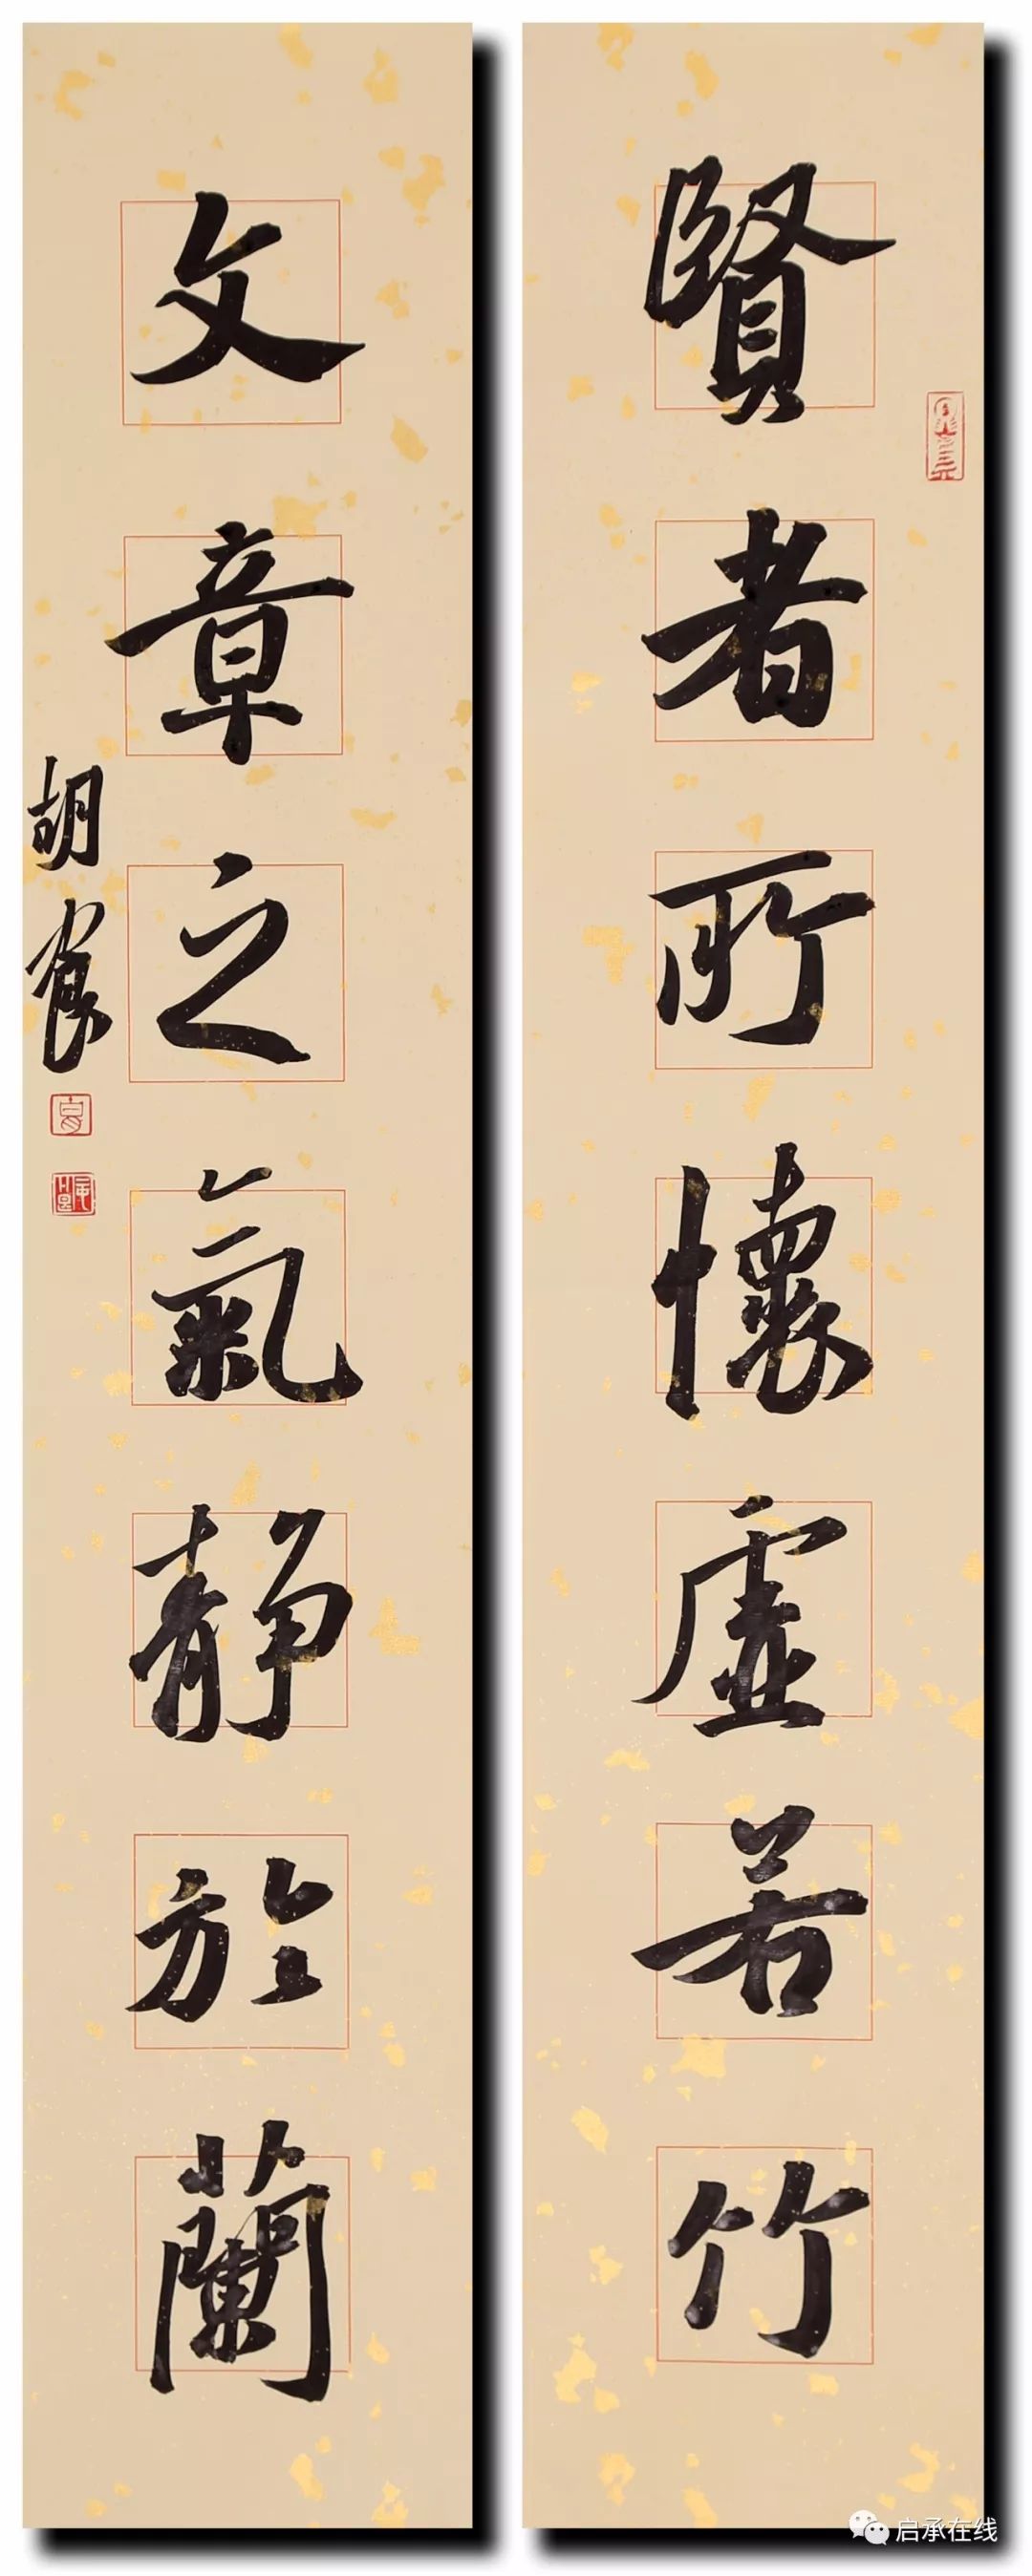 賢者所懷虛若竹
文章之氣靜於蘭
胡
启承在线